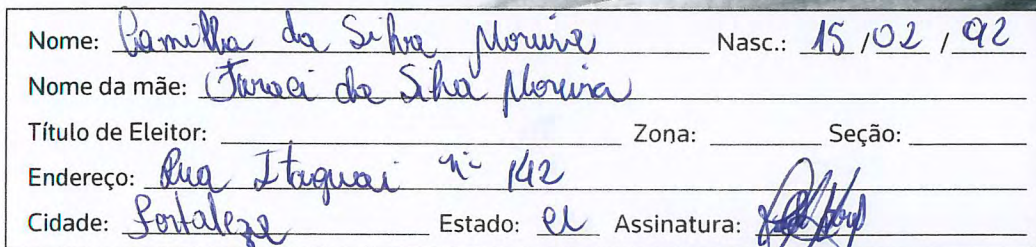 Nome: Camilla da Silva Moreira Nasc.: 15/02/92
Nome da mãe: Juraci da Silva Moreira
Título de Eleitor: Zona: Seção:
Endereço: Rua Itaguai nº 142
Cidade: Fortaleza Estado: CE Assinatura: